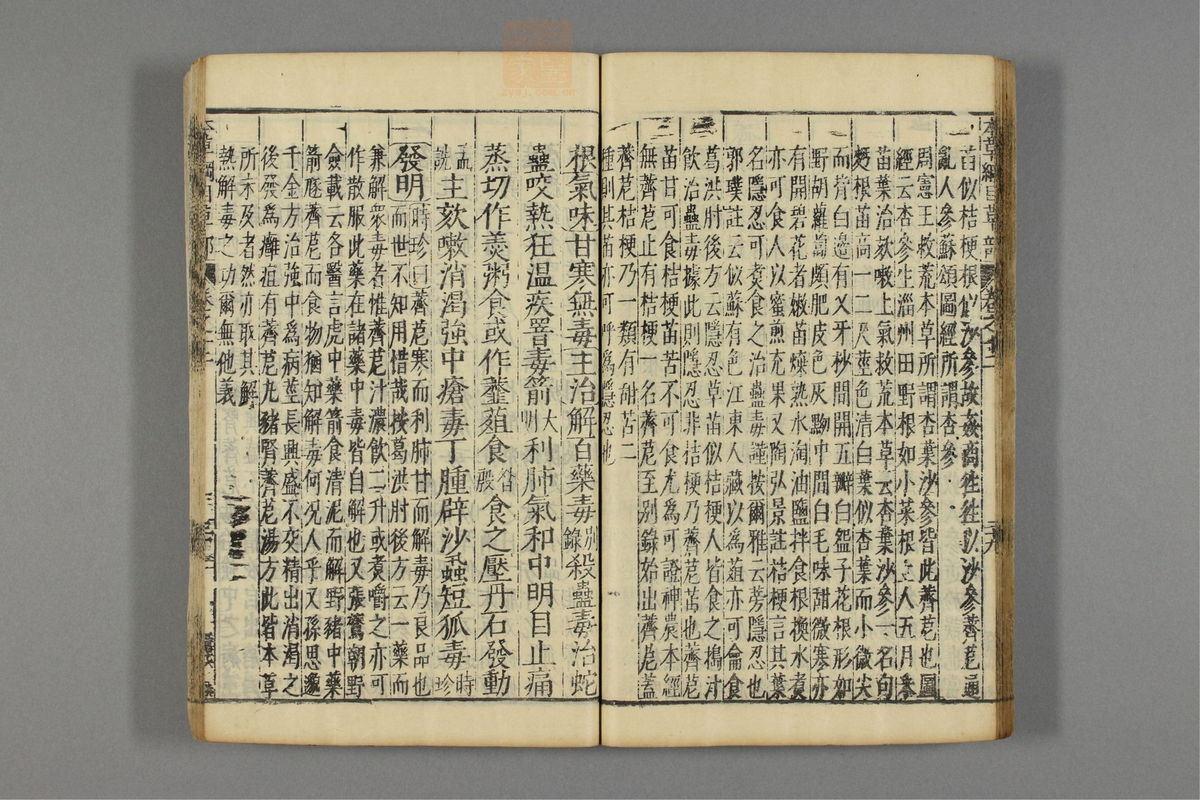 苗似桔梗根似沙參故姦商往往以沙參薺苨通
亂人參蘇頌圖經所謂杏參
周憲王救荒本草所謂杏葉沙參皆此薺苨也圖
經云杏參生淄州田野根如小菜根土人五月采
苗葉治欬嗽上氣救荒本草云杏葉沙參一名白
麪根苗高一二尺莖色清白葉似杏葉而小微尖
而背白邊有叉牙杪間開五瓣白盌子花根形如
野胡蘿蔔頗肥皮色灰黲中間白毛味甜微寒亦
有開碧花者嫩苗煠熟水淘油鹽拌食根換水煮
亦可食人以蜜煎充果又陶弘景註桔梗言其葉
名隱忍可煮食之治蠱毒謹按爾雅云蒡隱忍也
郭璞註云似蘇有毛江東人藏以為葅亦可瀹食
葛洪肘後方云隱忍草苗似桔梗人皆食之搗汁
飲治蠱毒據此則隱忍非桔梗乃薺苨苗也薺苨
苗甘可食桔梗苗苦不可食尤為可證神農本經
無薺苨止有桔梗一名薺苨至別錄始出薺苨蓋
薺苨桔梗乃一類有甜苦二
種則其苗亦可呼為隱忍也
根氣味甘寒無毒主治解百藥毒別錄殺蠱毒治蛇
蟲咬熱狂溫疾署毒箭大明利肺氣和中明目止痛
蒸切作羹粥食或作虀葅食昝殷食之壓丹石發動
孟詵主欬嗽消渴強中瘡毒丁腫辟沙蝨短狐毒時珍
發明時珍曰薺苨寒而利肺甘而解毒乃良品也
而世不知用惜哉按葛洪肘後方云一藥而
兼解眾毒者惟薺苨汁濃飲二升或煮嚼之亦可
作散服此藥在諸藥中毒皆自解也又張鷟朝野
僉載云各醫言虎中藥箭食清泥而解野豬中藥
箭豗薺苨而食物猶知解毒何況人乎又孫思邈
千金方治強中為病莖長興盛不交精出消渴之
後發為癰疽有薺苨丸豬腎薺苨湯方此皆本草
所未及者然亦取其解
熱解毒之功爾無他義